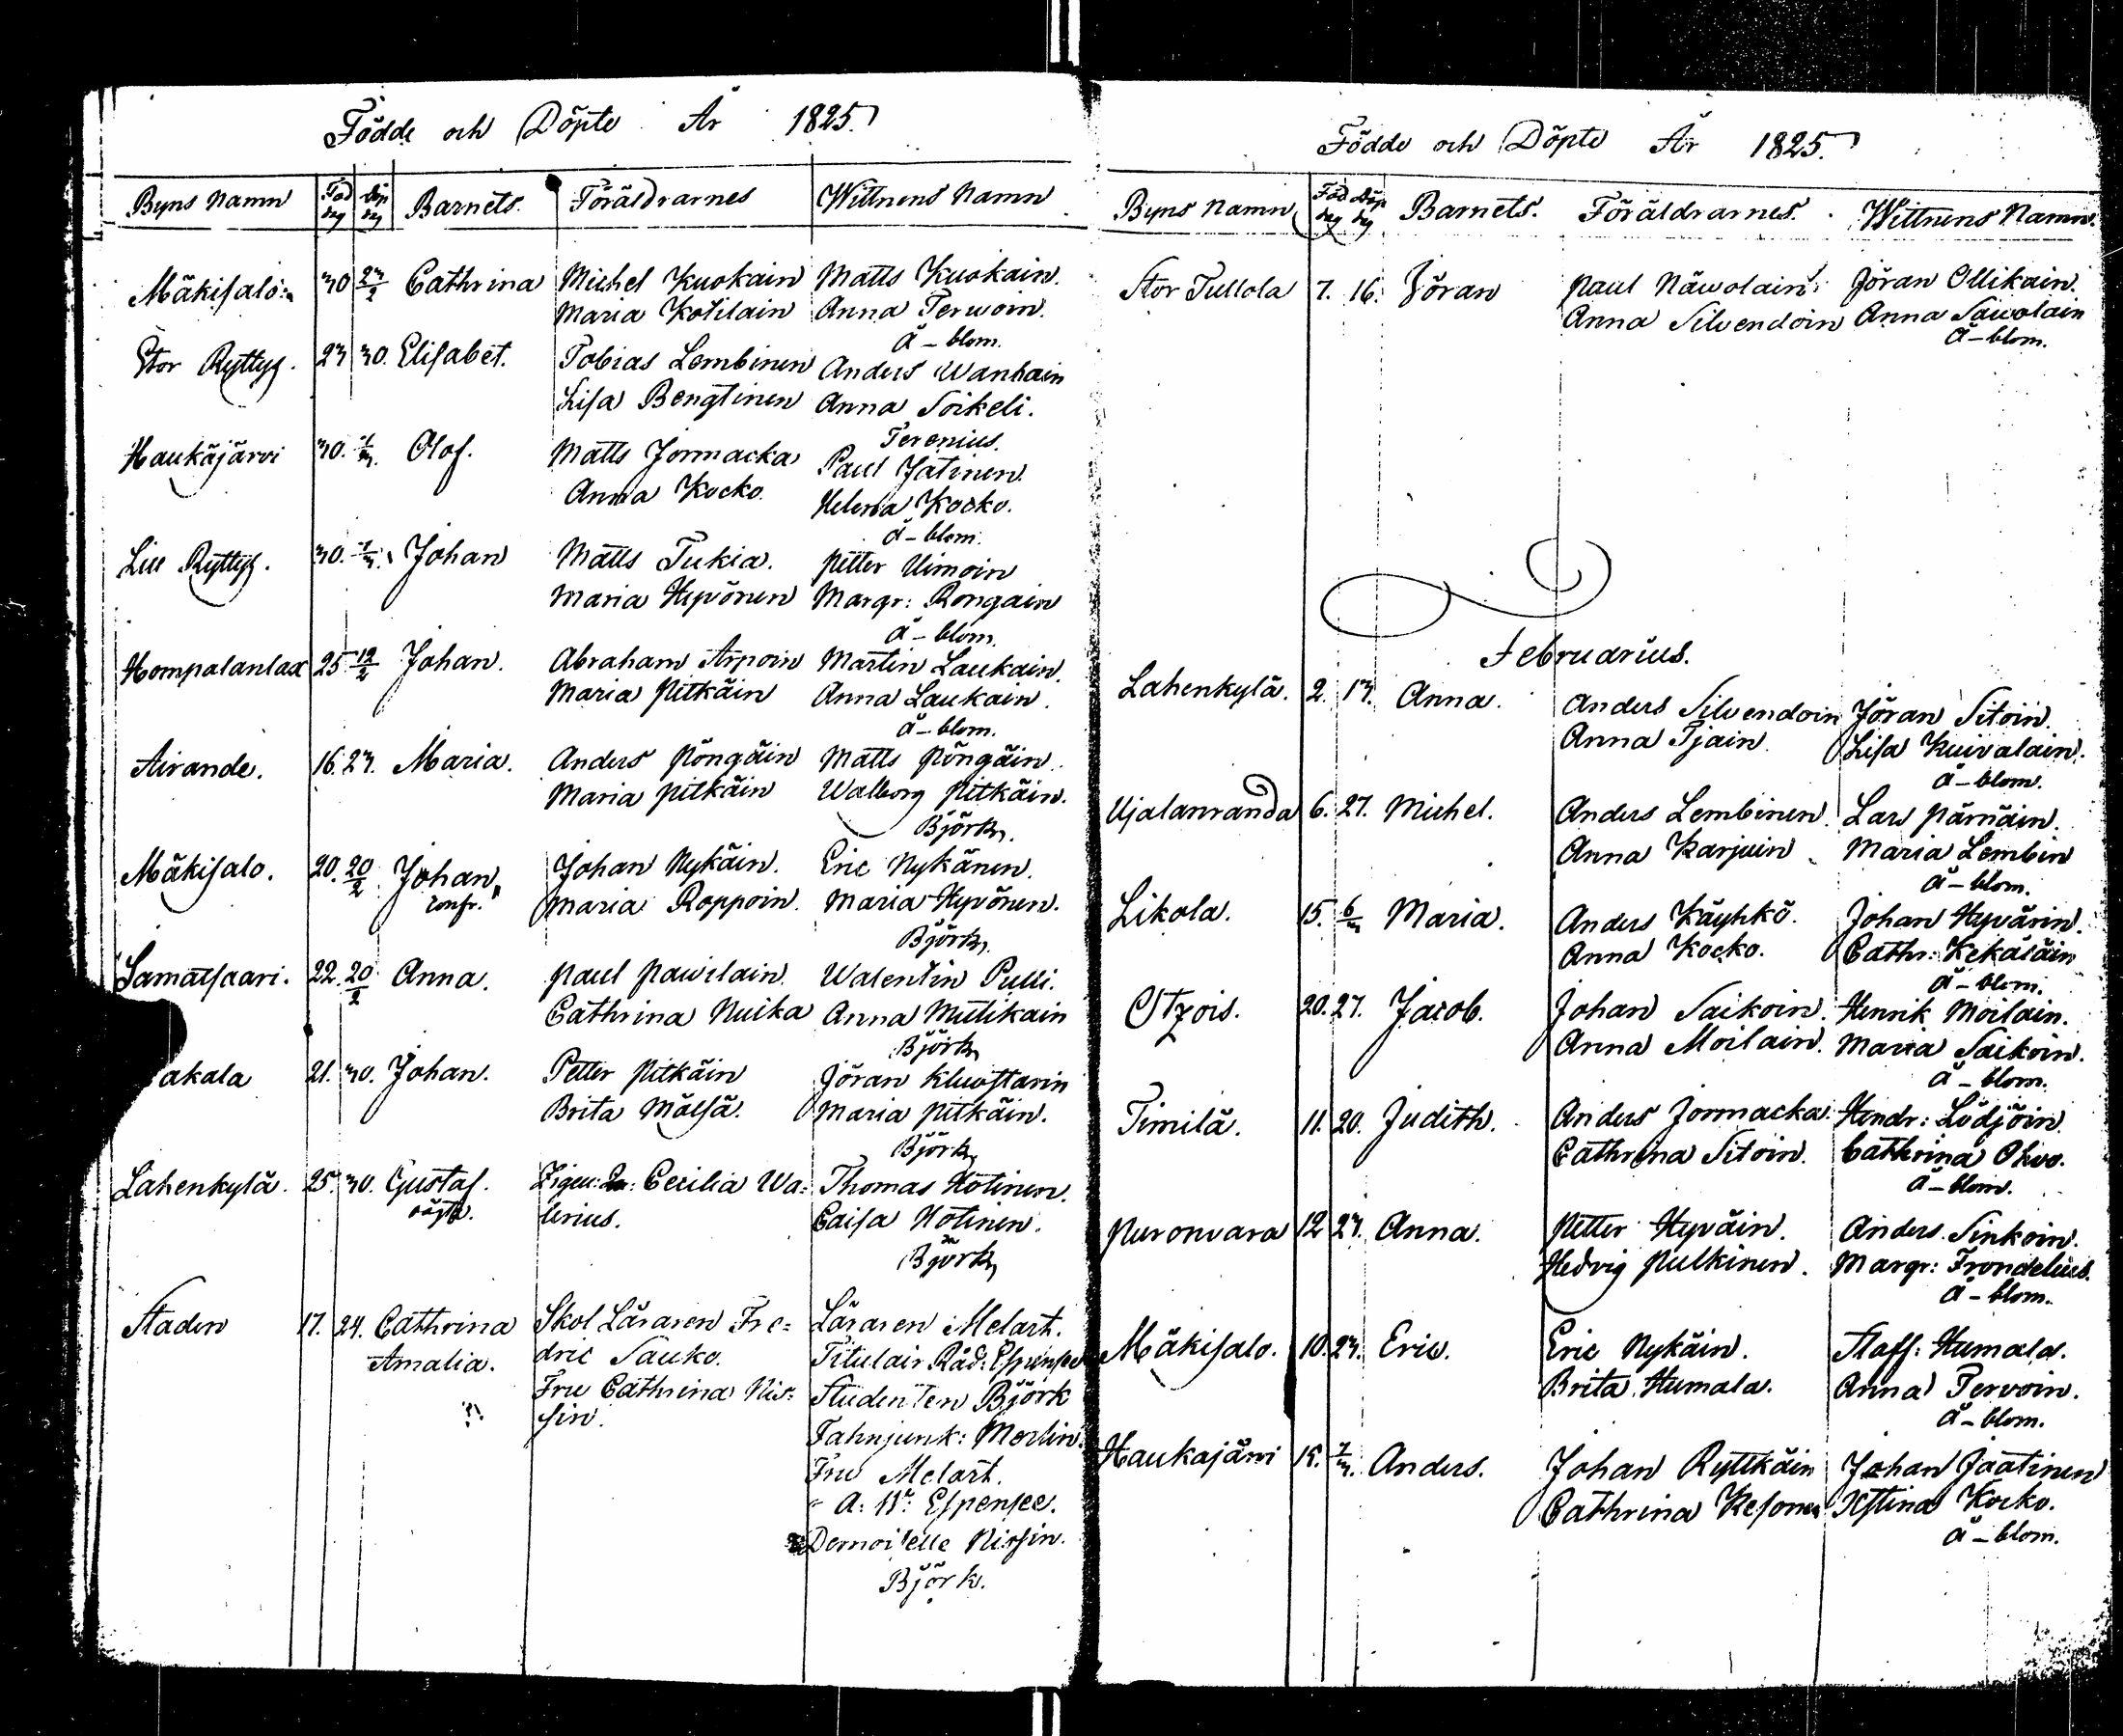 Födde och Döpte År 1825.
Byns Namn Föd dag Döp dag Barnets. Föräldrarnes Wittnens Namn
Mäkisalo 30 23/2 Cathrina Michel Kuokain Matts Kuokain.
Maria Kotilain Anna Terwoin.
ä-blom.
Stor Ryttyz. 23 30. Elisabet. Tobias Lembinen Anders Wanhain
Lisa Bengtinen Anna Soikeli.
Ferenius.
Haukäjärvi 30. 1/3. Olof. Matts Jormacka Paul Jatinen.
Anna Kocko. Helena Kocko.
ä-blom.
Lill Ryttyz. 30. 1/3. Johan Matts Tukia. Petter Uimoin
Maria Hyvönen Margr: Rongain
ä-blom.
Hompalanlax 25 12/2 Johan. Abraham Arpoin Martin Laukain.
Maria Pitkäin Anna Laukain.
ä-blom.
Airande. 16. 23. Maria. Anders Pöngäin Matts Pöngäin.
Maria Pitkäin Walborg Pitkäin.
Björk.
Mäkisalo. 20. 20/2 Johan Johan Nykäin. Eric Nykänen.
confr. Maria Roppoin. Maria Hyvönen.
Björk.
Samatsaari. 22. 20/2 Anna. Paul Pawilain. Walentin Pulli.
Cathrina Nuika Anna Mutikain
Björk
akala 21. 30. Johan. Petter Pitkäin Jöran Kluwstarin
Brita Mälsä. Maria Pitkäin.
Björk
Lahenkylä. 25. 30. Gustaf. Zigeu: Cecilia Wa= Thomas Hötinen.
oägta. lerius. Caisa Hötinen.
Björk
Staden 17. 24. Cathrina Skol Läraren Fre= Läraren Melart.
Amalia. dric Sauko. Titulair Råd:
Fru Cathrina Nis= Studenten Björk
sin. Fahnjunk: Morlin.
Fru Melart.
" A: Nr: Espensee.
Demoiselle Nissin.
Björk.
Födde och Döpte År 1825.
Byns Namn Föd dag Döp dag Barnets. Föräldrarnes. Wittnens Namn.
Stor Tullola 7. 16. Jöran Paul Näwolain. Jöran Ollikain.
Anna Silvendoin Anna Sawolain
ä-blom.
Februarius.
Lahenkylä. 2. 13. Anna. Anders Silvendoin Jöran Sitoin.
Anna Tjäin. Lisa Kuivalain.
ä-blom.
Ujalanranda 6. 27. Michel. Anders Lembinen. Lars Pärnäin.
Anna Karjuin Maria Lembin
ä-blom.
Likola. 15. 6/3 Maria. Anders Käyhkö. Johan Hyvärin.
Anna Kocko. Cathr: Kekäläin
ä-blom.
Otzois. 20. 27. Jacob. Johan Saikoin. Henrik Moilain.
Anna Moilain. Maria Saikoin.
ä-blom.
Timilä. 11. 20. Judith. Anders Jormacka. Hendr: Lödjöin.
Cathrina Sitoin. Cathrina Ohvo.
ä-blom.
Puronvara 12 27. Anna. Petter Hyväin. Anders Sinkoin.
Hedvig Pulkinen. Margr: Frondelius.
ä-blom.
Mäkisalo. 10. 27. Eric. Eric Nykäin. Staff: Humala.
Brita Humala. Anna Pervoin.
ä-blom.
Haukajärvi 15. 7/3. Anders. Johan Ryttkäin Johan Jaatinen
Cathrina Kesonen Kstina Kocko.
ä-blom.